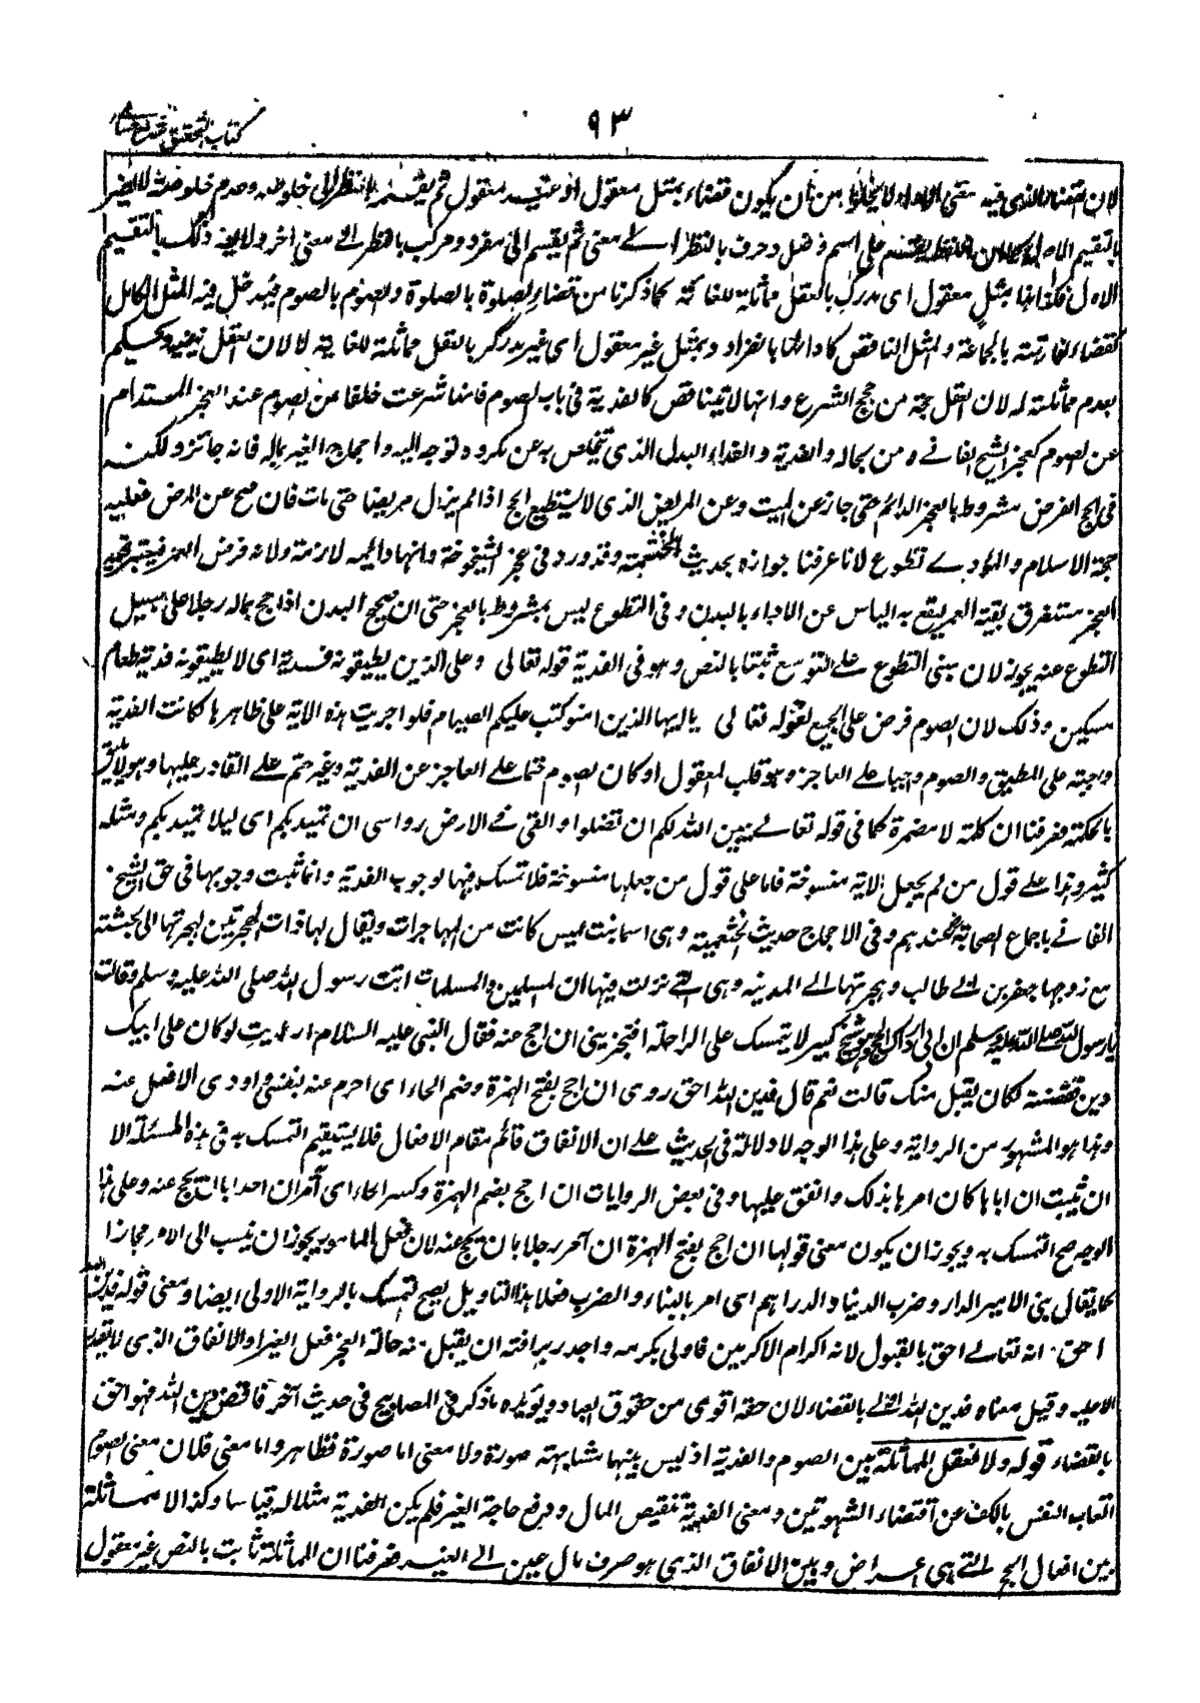 ٩٣
كتاب التحقيق
لان القضاء الذى فيه معنى الاداء لا يخلوا من ان يكون قضاء بمثل معقول او غير معقول ثم يقسمه بالنظر الى خلوصه وعدم خلوصه لا يصير
بالتقسيم الاول كما ان اللفظ ينقسم على اسم وفعل وحرف بالنظر الى معنى ثم يقسم الى مفرد ومركب بالنظر الى معنى اخر ولا يصير ذلك بالتقسيم
الاول فكذا هذا بمثل معقول اى يدرك بالعقل مماثلته للفائتة كما ذكرنا من قضاء الصلوة بالصلوة والصوم بالصوم فيدخل فيه المثل الكامل
كقضاء الفائتة بالجماعة والمثل الناقص كادائها بانفراد وبمثل غير معقول اى غير مدرك بالعقل مماثلته للفائتة لا لان العقل ينفيه ويحكم
بعدم مماثلته له لان العقل حجة من حجج الشرع وانها لا تتناقض كالفدية فى باب الصوم فانها شرعت خلفا عن الصوم عند العجز المستدام
عن الصوم كعجز الشيخ الفانے ومن بحاله والفدية والفداء البدل الذى يتخلص به عن مكروه توجه اليه واحجاج الغير بماله فانه جائز ولكنه
فى الحج الفرض مشروط بالعجز الدائم حتى جاز عن الميت وعن المريض الذى لا يستطيع الحج اذا لم يزل مريضا حتى مات فان صح عن المرض فعليه
حجة الاسلام والمؤدى تطوع لانا عرفنا جوازه بحديث الخثعمية وقد ورد فى عجز الشيخوخة وانها دائمة لازمة ولانه فرض العمر فيعتبر فيه
العجز مستغرق بقية العمر ليقع به الياس عن الاداء بالبدن وفى التطوع ليس بمشروط بالعجز حتى ان صحيح البدن اذا حج بماله رجلا على سبيل
التطوع عنه يجوز لان مبنى التطوع على التوسع ثبتا بالنص وهو فى الفدية قوله تعالى وعلى الذين يطيقونه فدية اى لا يطيقونه فدية طعام
مسكين وذلك لان الصوم فرض على الجميع لقوله تعالى يا ايها الذين امنو كتب عليكم الصيام فلو اجريت هذه الاية على ظاهرها لكانت الفدية
واجبة على المطيق والصوم واجبا على العاجز وهو قلب المعقول او كان الصوم حتما على العاجز عن الفدية وغير حتم على القادر عليها وهو لا يليق
بالحكمة فعرفنا ان كلمة لا مضمرة كما فى قوله تعالے يبين الله لكم ان تضلوا والقى فى الارض رواسى ان تميد بكم اى ليلا تميد بكم ومثله
كثير وهذا على قول من لم يجعل الاية منسوخة فاما على قول من جعلها منسوخة فلا تمسك فيها لوجوب الفدية وانما ثبت وجوبها فى حق الشيخ
الفانے باجماع الصحابة عندهم وفى الاحجاج حديث الخثعمية وهى اسما بنت عميس كانت من المهاجرات ويقال لها ذات الهجرتين لهجرتها الى الحبشة
مع زوجها جعفر بن ابى طالب وهجرتها الى المدينه وهى التى نزلت فيها ان المسلمين والمسلمات اتت رسول الله صلى الله عليه وسلم وقالت
يا رسول الله صلى الله عليه وسلم ان ابى ادركه الحج وهو شيخ كبير لا يتمسك على الراحلة افتجزينى ان احج عنه فقال النبى عليه السلام ارايت لو كان على ابيك
دين فقضيته لكان يقبل منك قالت نعم قال فدين الله احق روى ان احج بفتح الهمزة وضم الحاء اى احرم عنه بنفسى واودى الافعل عنه
وهذا هو المشهور من الرواية وعلى هذا الوجه لا دلالة فى الحديث على ان الانفاق قائم مقام الافعال فلا يستقيم التمسك به فى هذه المسئلة الا
ان ثبت ان اباها كان امرها بذلك وانفق عليها وفى بعض الروايات ان احج بضم الهمزة وكسر الحاء اى آمر ان احدا بان يحج عنه وعلى هذا
الوجه صح التمسك به ويجوز ان يكون معنى قولها ان احج بفتح الهمزة ان آمر رجلا بان يحج عنه لان فعل المامور يجوز ان ينسب الى الامر مجازا
كما يقال بنى الامير الدار وضرب الدنيار والدراهم اى امر بالبناء والضرب فعلا هذا التاويل يصح التمسك بالرواية الاولى ايضا ومعنى قوله فدين الله
احق انه تعالے احق بالقبول لانه اكرام الاكرمين فاولى بكرمه واجدر برافته ان يقبل منه حالة العجز فعل الغير او الانفاق الذى لا يقدر
الا عليه وقيل معناه فدين الله اولى بالقضاء لان حقه اقوى من حقوق العباد ويؤيده ما ذكر فى المصابيح فى حديث آخر فاقض دين الله فهو احق
بالقضاء قوله ولا نعقل المماثلة بين الصوم والفدية اذ ليس بينها مشابهته صورة ولا معنى اما صورة فظاهر واما معنى فلان معنى الصوم
اتعاب النفس بالكف عن اقتضاء الشهوتين ومعنى الفدية تنقيص المال ودفع حاجة الغير فلم يكن الفدية مثلا له قياسا وكذا لا مماثلة
بين افعال الحج التى هى اعراض وبين الانفاق الذى هو صرف مال عين الى الغير فعرفنا ان المماثلة ثابت بالنص غير معقول